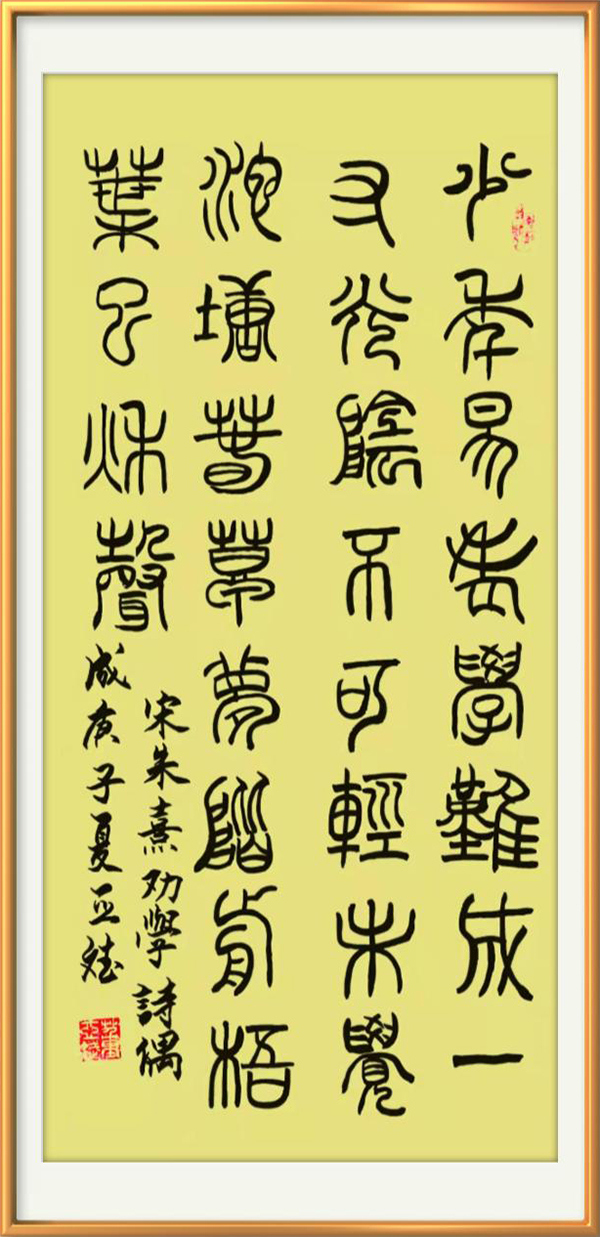 少年易老學難成一
寸光陰不可輕未覺
池塘春草夢階前梧
葉已秋聲
宋朱熹劝學詩偶
成庚子夏亚斌